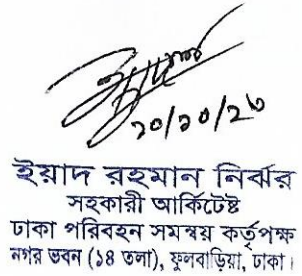 ২০/১০/২৩
ইয়াদ রহমান নির্ঝর
সহকারী আর্কিটেক্ট
ঢাকা পরিবহন সমন্বয় কর্তৃপক্ষ
নগর ভবন (১৪ তলা), ফুলবাড়িয়া, ঢাকা।